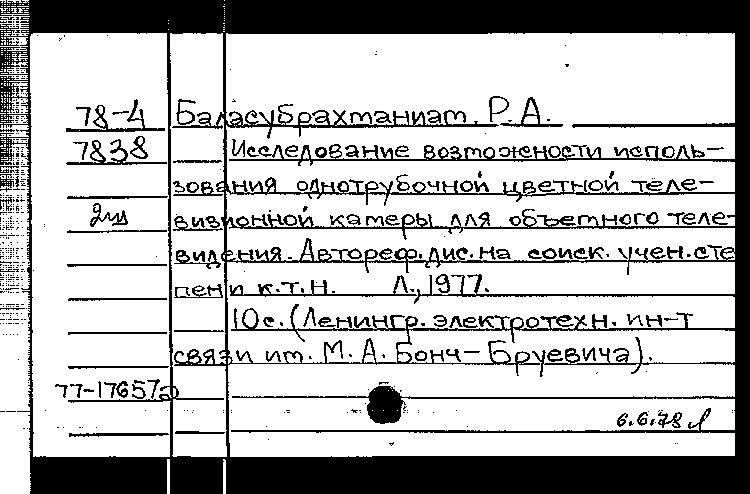 78-4 Баласубрахманиам. Р.А.
7838 Исследование возможности исполь-
зования однотрубочной цветной теле-
2уд визионной камеры для объемного теле-
видения. Автореф.дис.на соиск. учен.сте
пени к.т.н. Л., 1977.
10с. (Ленингр. электротехн. ин-т
связи им. М.А. Бонч-Бруевича).
77-17657а
6.6.78 Л